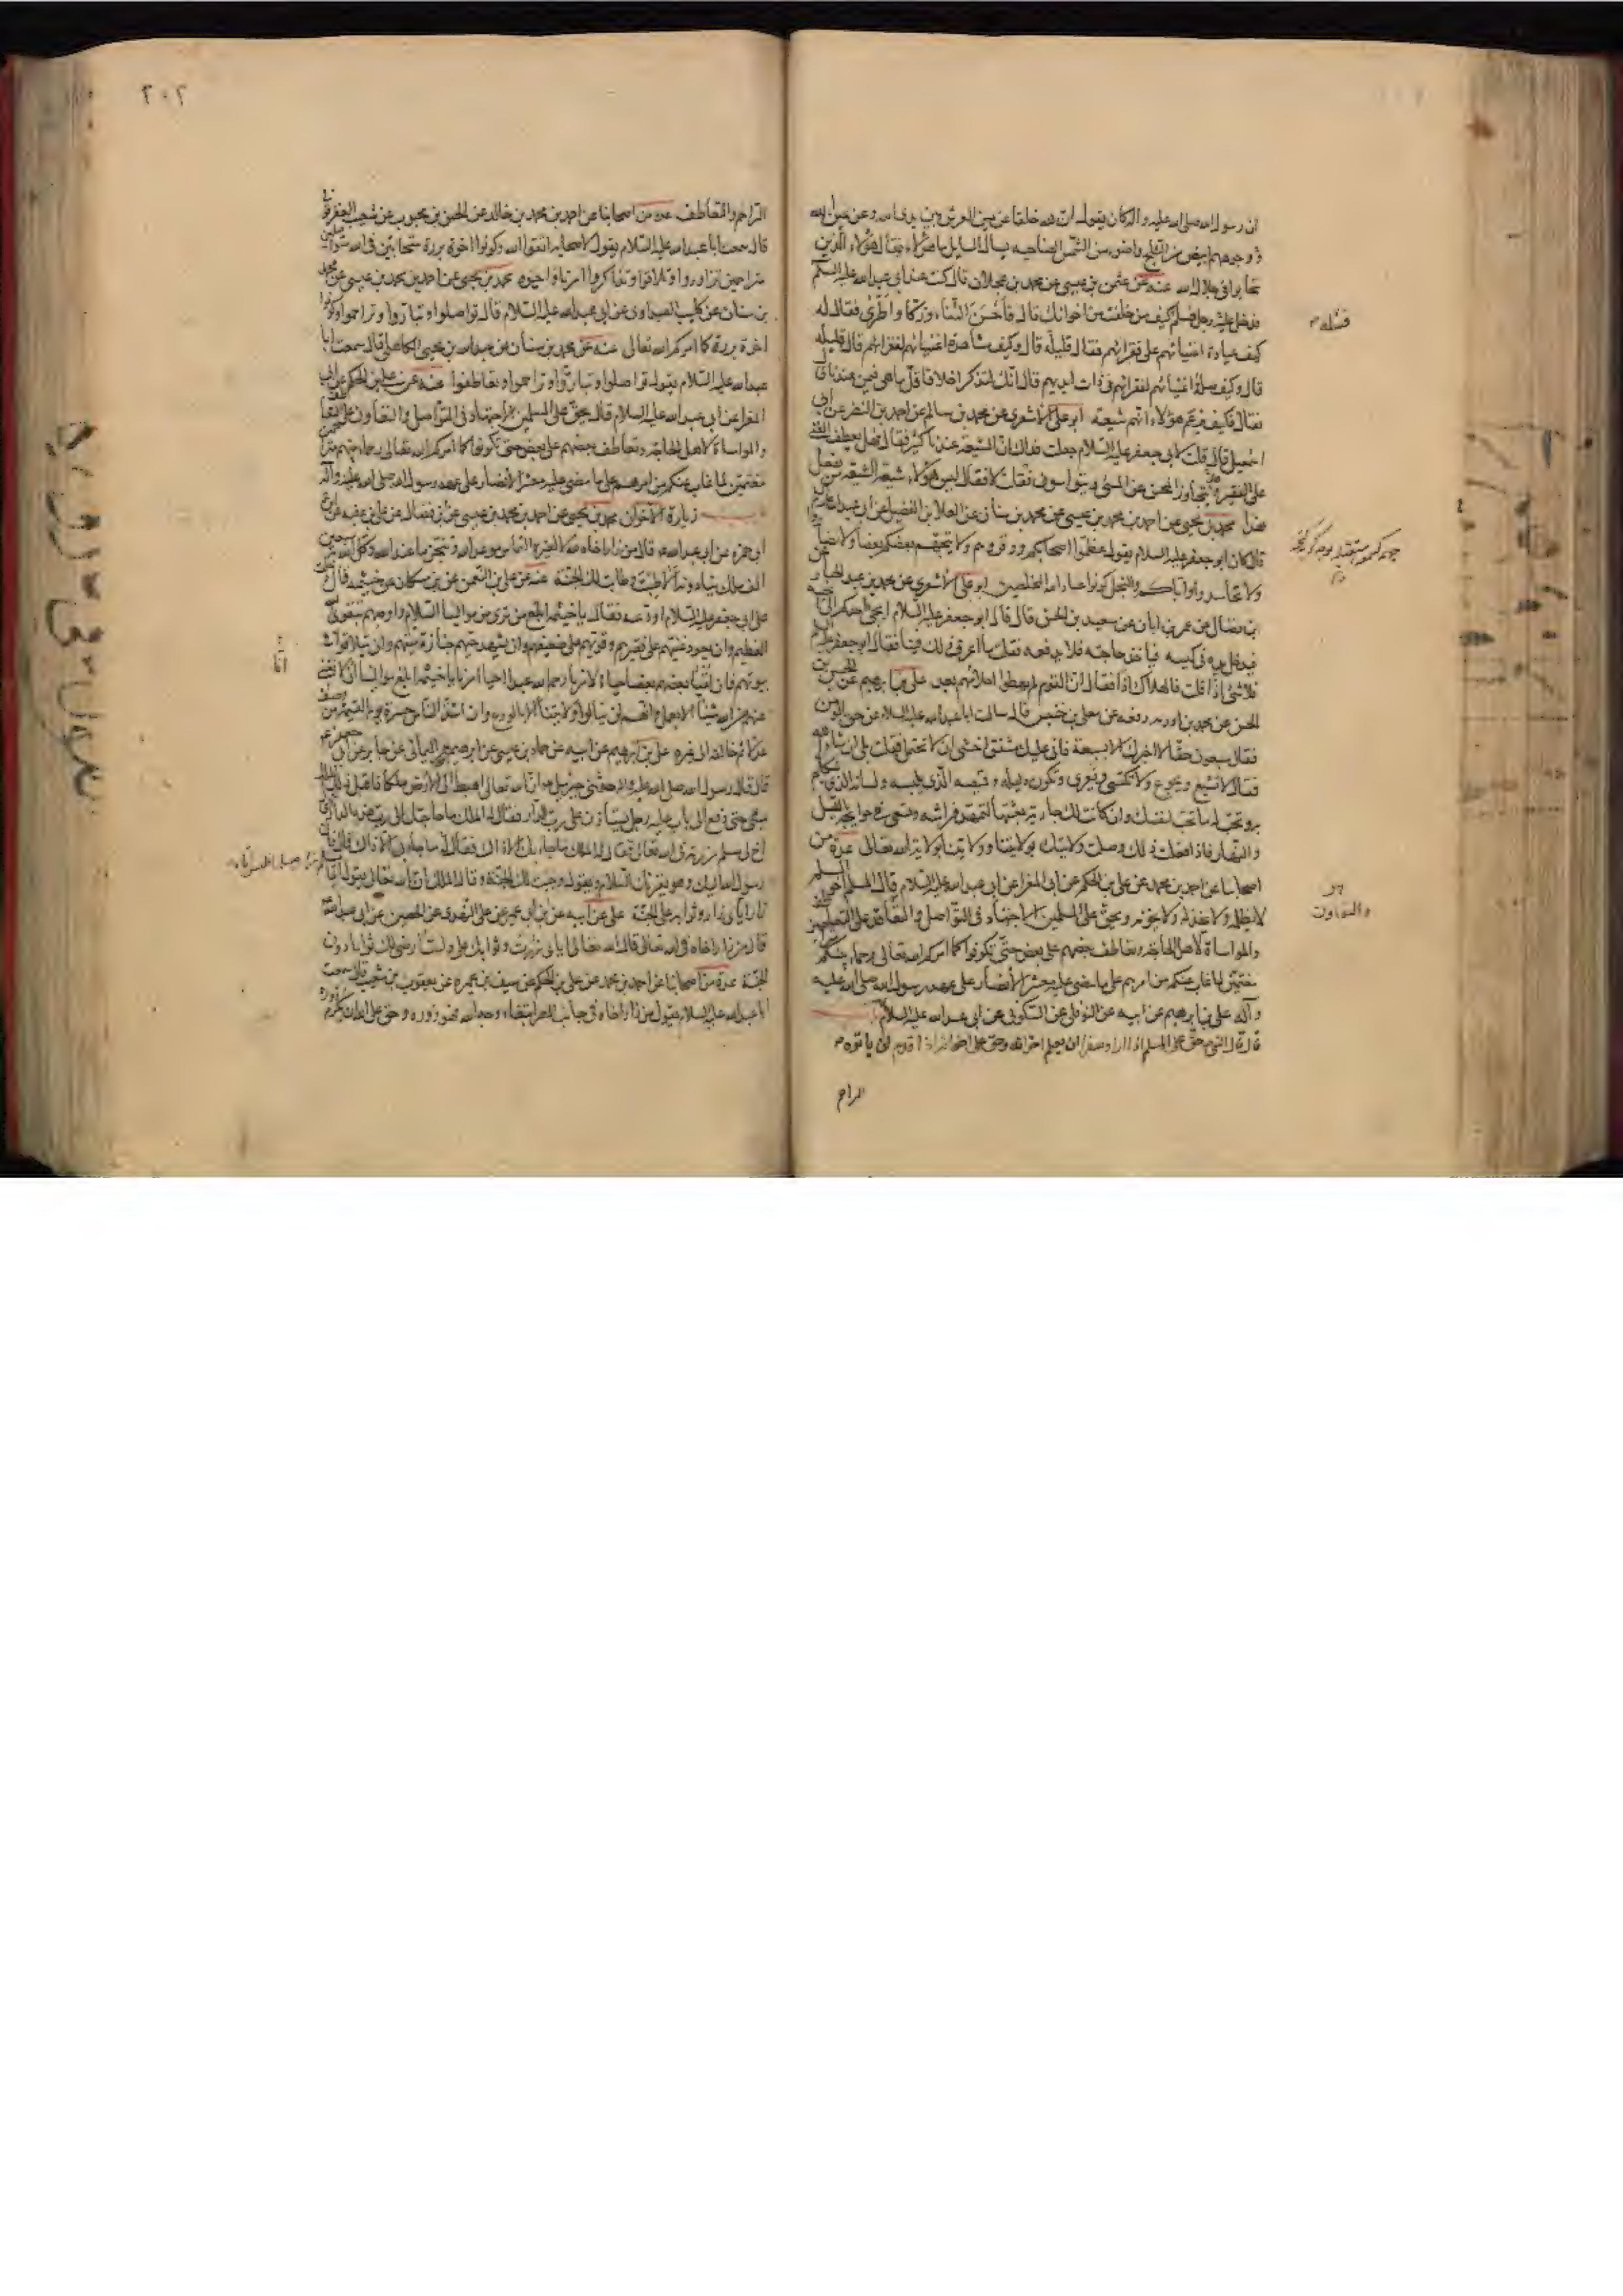 ان رسول الله صلى الله عليه واله كان يقول ان لله خلقا عن يمين العرش بين يدى الله وعن يمين الله
وجوههم ابيض من الثلج واضوء من الشمس الضاحيه يسال السايل ما هؤلاء فيقال هؤلاء الذين
تحابوا فى جلال الله عنه عن عثمن بن عيسى عن محمد بن عجلان قال كنت عند ابى عبد الله عليه السلم
فدخل عليه رجل فسلم كيف من خلفت من اخوانك قال فاحسن الثناء وزكى واطرى فقال له
كيف عيادة اغنيائهم على فقرائهم فقال قليلة قال وكيف مشاهدة اغنيائهم لفقرائهم قال قليلة
قال وكيف صلة اغنيائهم لفقرائهم فى ذات ايديهم قال انك لتذكر اخلاقا قل ما هى فيمن عندنا
فقال فكيف يزعم هؤلاء انهم شيعة ابو على الاشعرى عن محمد بن سالم عن احمد بن النضر عن ابى
اسمعيل قال قلت لابى جعفر عليه السلام جعلت فداك ان الشيعة عندنا كثير فقال فهل يعطف الغنى
على الفقير وهل يتجاوز المحسن عن المسئ ويتواسون فقلت لا فقال ليس هؤلاء شيعة الشيعة من يفعل
هذا محمد بن يحيى عن احمد بن محمد بن عيسى عن محمد بن سنان عن العلا بن الفضيل عن ابى عبد الله
قال كان ابو جعفر عليه السلام يقول عظموا اصحابكم ووقروهم ولا يتجهم بعضكم بعضا ولا تضاروا
ولا تحاسدوا واياكم والبخل كونوا عباد الله المخلصين ابو على الاشعرى عن محمد بن عبد الجبار
ابن فضال عن عمر بن ابان عن سعيد بن الحسن قال قال ابو جعفر عليه السلام ايجئ احدكم الى اخيه
فيدخل يده فى كيسه فياخذ حاجته فلا يدفعه فقلت ما اعرف ذلك فينا فقال ابو جعفر
فلا شئ اذا قلت فالهلاك اذا فقال ان القوم لم يعطوا احلامهم بعد على بن ابرهيم عن
الحسن عن محمد بن اورمه رفعه عن معلى بن خنيس قال سالت ابا عبد الله عليه السلام عن حق المؤمن
فقال سبعون حقا لا اخبرك الا بسبعة فانى عليك مشفق اخشى ان لا تحتمل فقلت بلى ان شاء الله
فقال لا تشبع ويجوع ولا تكتسى ويعرى وتكون دليله وقميصه الذى يلبسه ولسانه الذى يتكلم
به وتحب له ما تحب لنفسك وان كانت لك جارية بعثتها لتمهد فراشه وتسعى فى حوايجه بالليل
والنهار فاذا فعلت ذلك وصلت ولايتك بولايتنا وولايتنا بولاية الله تعالى عدة من
اصحابنا عن احمد بن محمد عن على بن الحكم عن ابى المغرا عن ابى عبد الله عليه السلام قال المسلم اخو المسلم
لا يظلمه ولا يخذله ولا يخونه ويحق على المسلمين الاجتهاد فى التواصل والتعاقد على التعاطف
والمواساة لاهل الحاجة وتعاطف بعضهم على بعض حتى تكونوا كما امركم الله تعالى رحماء بينكم
مغتمين لما غاب عنكم من امرهم على ما مضى عليه معشر الانصار على عهد رسول الله صلى الله عليه
وآله على بن ابرهيم عن ابيه عن النوفلى عن السكونى عن ابى عبد الله عليه السلام
قال قال النبى حق على المسلم اذا اراد سفرا ان يعلم اخوانه وحق على اخوانه اذا قدم ان ياتوه
التراحم
والتعاون
٢٠٢
التراحم والتعاطف عدة من اصحابنا عن احمد بن محمد بن خالد عن الحسن بن محبوب عن شعيب العقرقوفى
قال سمعت ابا عبد الله عليه السلام يقول لاصحابه اتقوا الله وكونوا اخوة بررة متحابين فى الله متواصلين
متراحمين تزاوروا وتلاقوا وتذاكروا امرنا واحيوه محمد بن يحيى عن احمد بن محمد بن عيسى عن محمد
بن سنان عن كليب الصيداوى عن ابى عبد الله عليه السلام قال تواصلوا وتباروا وتراحموا وكونوا
اخوة بررة كما امركم الله تعالى عنه عن محمد بن سنان عن عبد الله بن يحيى الكاهلى قال سمعت ابا
عبد الله عليه السلام يقول تواصلوا وتباروا وتراحموا وتعاطفوا عنه عن على بن الحكم عن ابى
المغرا عن ابى عبد الله عليه السلام قال يحق على المسلمين الاجتهاد فى التواصل والتعاون على التعاطف
والمواساة لاهل الحاجة وتعاطف بعضهم على بعض حتى تكونوا كما امركم الله تعالى رحماء بينهم متراحمين
مغتمين لما غاب عنكم من امرهم على ما مضى عليه معشر الانصار على عهد رسول الله صلى الله عليه وآله
زيارة الاخوان محمد بن يحيى عن احمد بن محمد بن عيسى عن ابن فضال عن على بن عقبه عن
ابى حمزه عن ابى عبد الله قال من زار اخاه لله لا لغيره التماس موعد الله وتنجز ما عند الله وكل الله به سبعين
الف ملك ينادونه الا طبت وطابت لك الجنة عنه عن على بن النعمن عن ابن مسكان عن خيثمه قال دخلت
على ابى جعفر عليه السلام اودعه فقال يا خيثمه ابلغ من ترى من موالينا السلام واوصهم بتقوى الله
العظيم وان يعود غنيهم على فقيرهم وقويهم على ضعيفهم وان يشهد حيهم جنازة ميتهم وان يتلاقوا فى
بيوتهم فان لقيا بعضهم بعضا حياة لامرنا رحم الله عبدا احيا امرنا يا خيثمه ابلغ موالينا انا لا نغنى
عنهم من الله شيئا الا بعمل وانهم لن ينالوا ولايتنا الا بالورع وان اشد الناس حسرة يوم القيمة من وصف
عدلا ثم خالفه الى غيره على بن ابرهيم عن ابيه عن حماد بن عيسى عن ابرهيم بن عمر اليمانى عن جابر عن ابى جعفر
قال قال رسول الله صلى الله عليه واله حدثنى جبرئيل ان الله تعالى اهبط الى الارض ملكا فاقبل ذلك الملك
يمشى حتى دفع الى باب عليه رجل يستاذن على رب الدار فقال له الملك ما حاجتك الى رب هذه الدار قال
اخ لى مسلم زرته فى الله تعالى فقال له الملك ما جاء بك الا ذاك فقال ما جاء بى الا ذاك قال فانى
رسول الله اليك وهو يقرئك السلام ويقول وجبت لك الجنة وقال الملك ان الله تعالى يقول ايما
زار اياى زار وثوابه على الجنة على عن ابيه عن ابن ابى عمير عن على النهدى عن الحصين عن ابى عبد الله
قال من زار اخاه فى الله تعالى قال الله تعالى اياى زرت وثوابك على ولست ارضى لك ثوابا دون
الجنة عدة من اصحابنا عن احمد بن محمد عن على بن الحكم عن سيف بن عميره عن يعقوب بن شعيب قال سمعت
ابا عبد الله عليه السلام يقول من زار اخاه فى جانب المصر ابتغاء وجه الله فهو زوره وحق على الله ان يكرم زوره